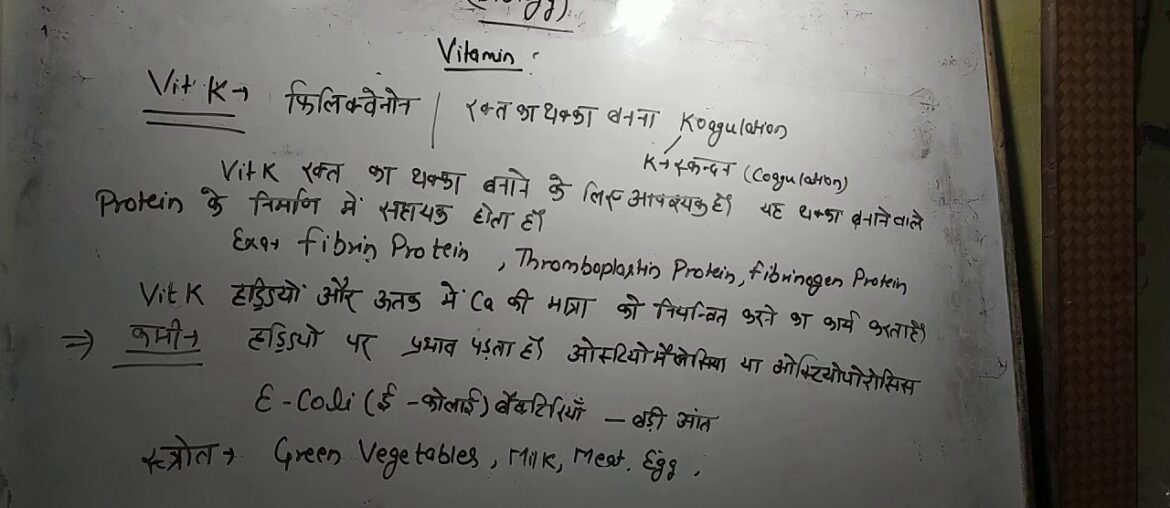 Vitamin :
Vit K → फिलिक्वेनोन | रक्त का थक्का बनना Koggulation
K → स्कन्दन (Cogulation)
Vit K रक्त का थक्का बनाने के लिए आवश्यक है। यह थक्का बनाने वाले
Protein के निर्माण में सहायक होता है।
Exa→ fibrin Protein , Thromboplastin Protein, fibrinogen Protein
Vit K हड्डियों और ऊतक में Ca की मात्रा को नियन्त्रित करने का कार्य करता है।
⇒ कमी → हड्डियो पर प्रभाव पड़ता है। ओस्टियोमैलेसिया या ओस्टियोपोरोसिस
E-Coli (ई-कोलाई) बैक्टिरियाँ – बड़ी आंत
स्त्रोत → Green Vegetables, Milk, Meat, Egg,